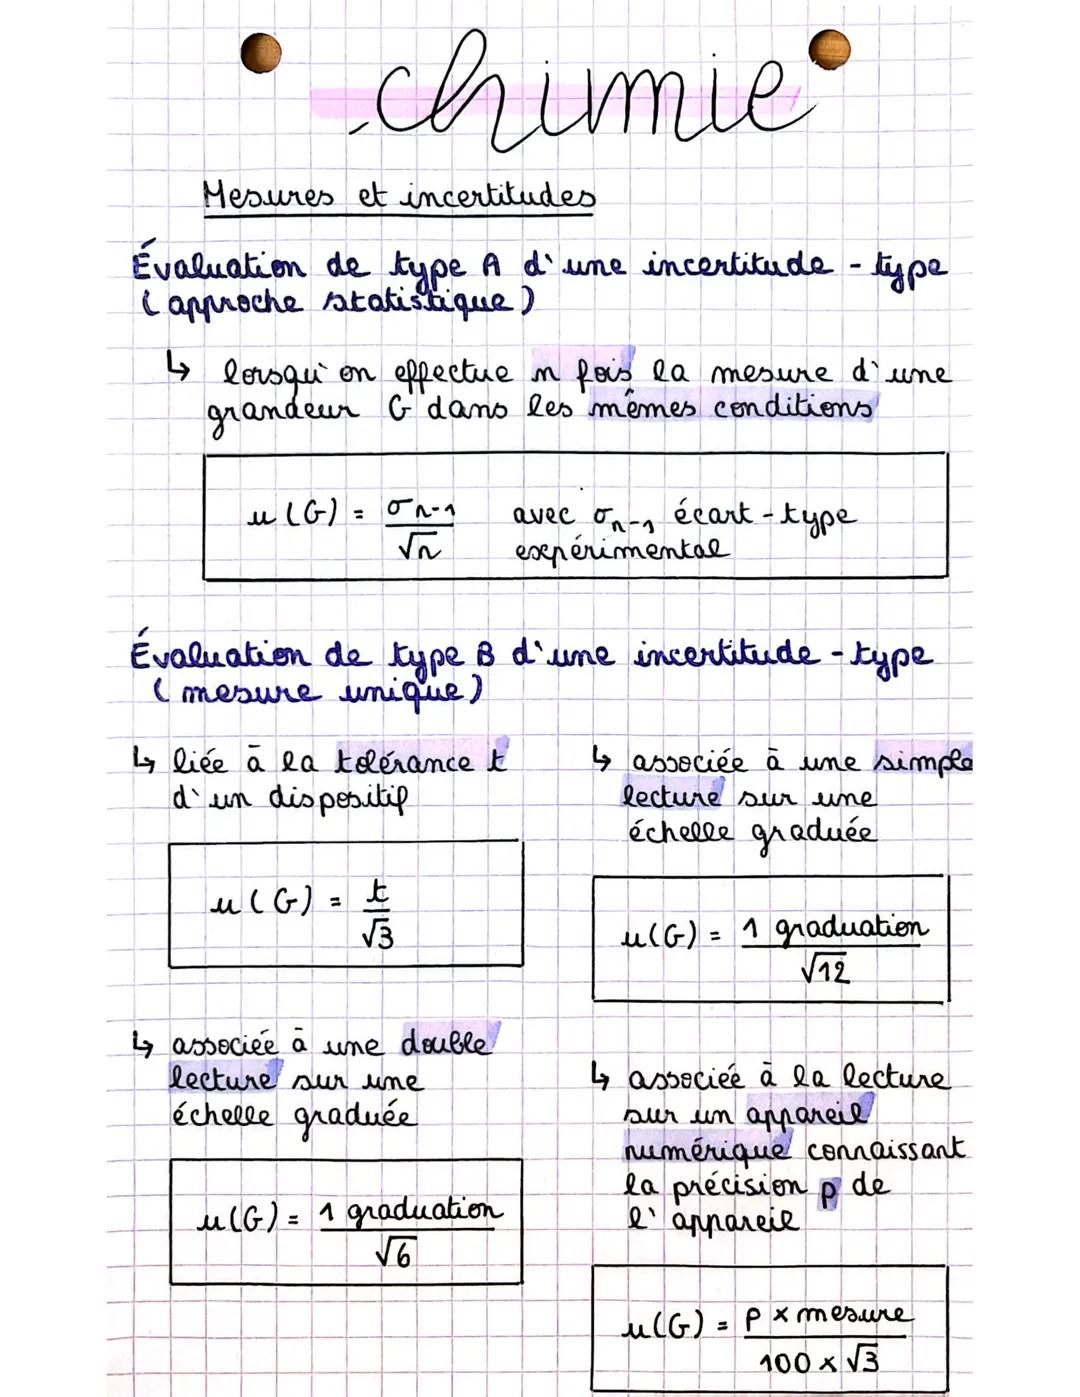 chimie
Mesures et incertitudes
Évaluation de type A d'une incertitude - type
(approche statistique)
↳ lorsqu'on effectue n fois la mesure d'une
grandeur G dans les mêmes conditions
u(G) = σn-1/√n avec σn-1 écart-type
expérimental
Évaluation de type B d'une incertitude - type
(mesure unique)
↳ liée à la tolérance t
d'un dispositif
u(G) = t/√3
↳ associée à une simple
lecture sur une
échelle graduée
u(G) = 1 graduation/√12
↳ associée à une double
lecture sur une
échelle graduée
u(G) = 1 graduation/√6
↳ associée à la lecture
sur un appareil
numérique connaissant
la précision p de
l'appareil
u(G) = p x mesure/100 x √3